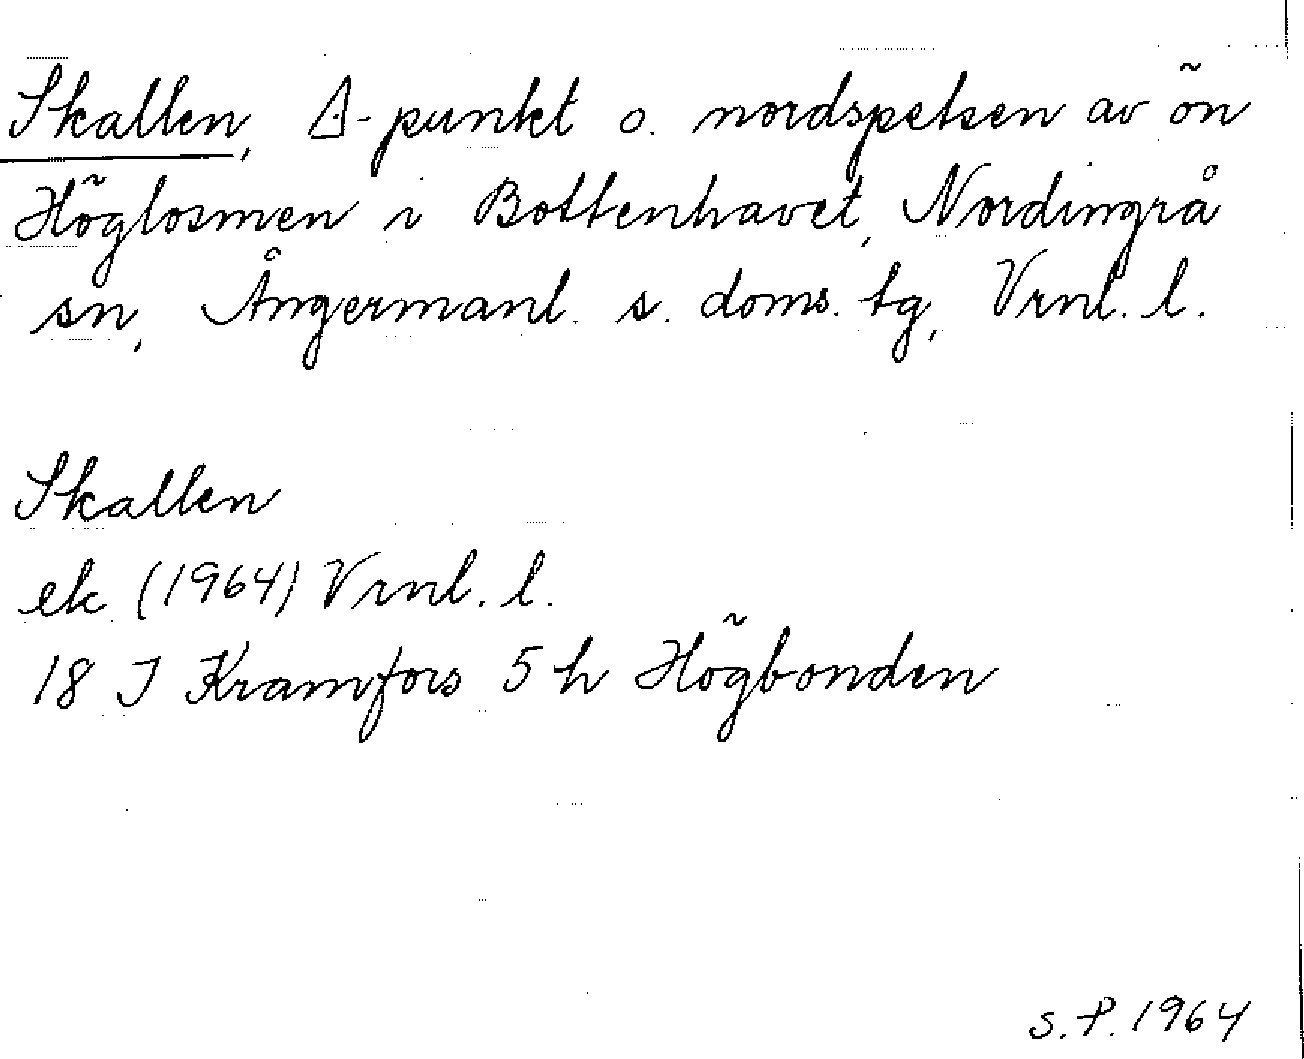 Skallen, △-punkt o. nordspetsen av ön
Höglosmen i Bottenhavet, Nordingrå
sn, Ångermanl. s. doms. tg, Vrnl. l.
Skallen
ek (1964) Vrnl. l.
18 J Kramfors 5 h Högbonden
S.P. 1964